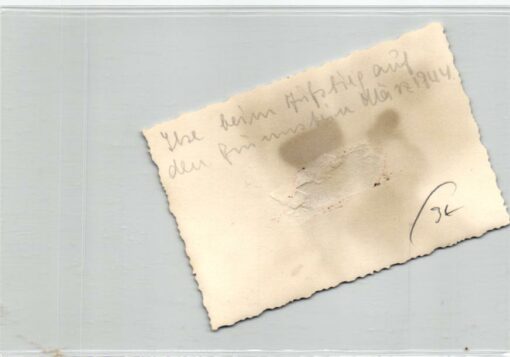 Ilse beim Aufstieg auf
den März 1944